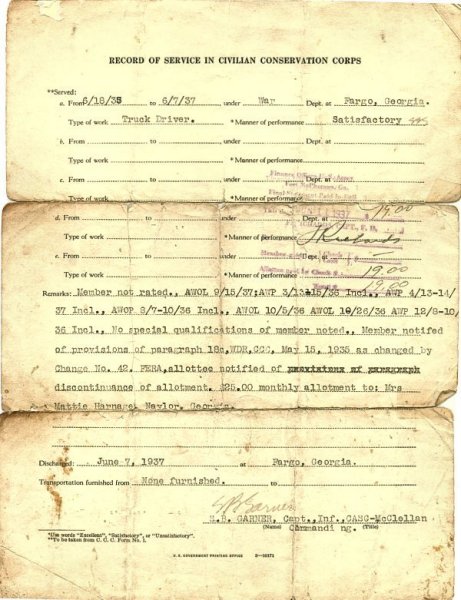 RECORD OF SERVICE IN CIVILIAN CONSERVATION CORPS
**Served:
a. From 6/18/35 to 6/7/37 under War Dept. at Fargo, Georgia.
Type of work Truck Driver. *Manner of performance Satisfactory
b. From to under Dept. at
Type of work *Manner of performance
c. From to under Dept. at
Finance Office, U.S. Army
Type of work *Manner of performance
19.00
d. From to under Dept. at
Type of work *Manner of performance
JRichards
e. From to under Dept. at
Type of work *Manner of performance
19.00
19.00
Remarks: Member not rated., AWOL 9/15/37:AWP 3/13-15/36 Incl., AWP 4/13-14/
37 Incl., AWOP 8/7-10/36 Incl., AWOL 10/5/36 AWOL 10/26/36 AWP 12/8-10/
36 Incl., No special qualifications of member noted., Member notifed
of provisions of paragraph 18c,WDR,CCC, May 15, 1935 as changed by
Change No. 42. FERA,allottee notified of provisions of paragraph
discontinuance of allotment. $25.00 monthly allotment to: Mrs
Mattie Harnage, Naylor, Georgia.
Discharged: June 7, 1937 at Fargo, Georgia.
Transportation furnished from None furnished. to
GARNER, Capt., Inf., CASC-McClellan
(Name) Commanding. (Title)
*Use words "Excellent", "Satisfactory", or "Unsatisfactory".
**To be taken from C. C. C. Form No. 1.
U. S. GOVERNMENT PRINTING OFFICE